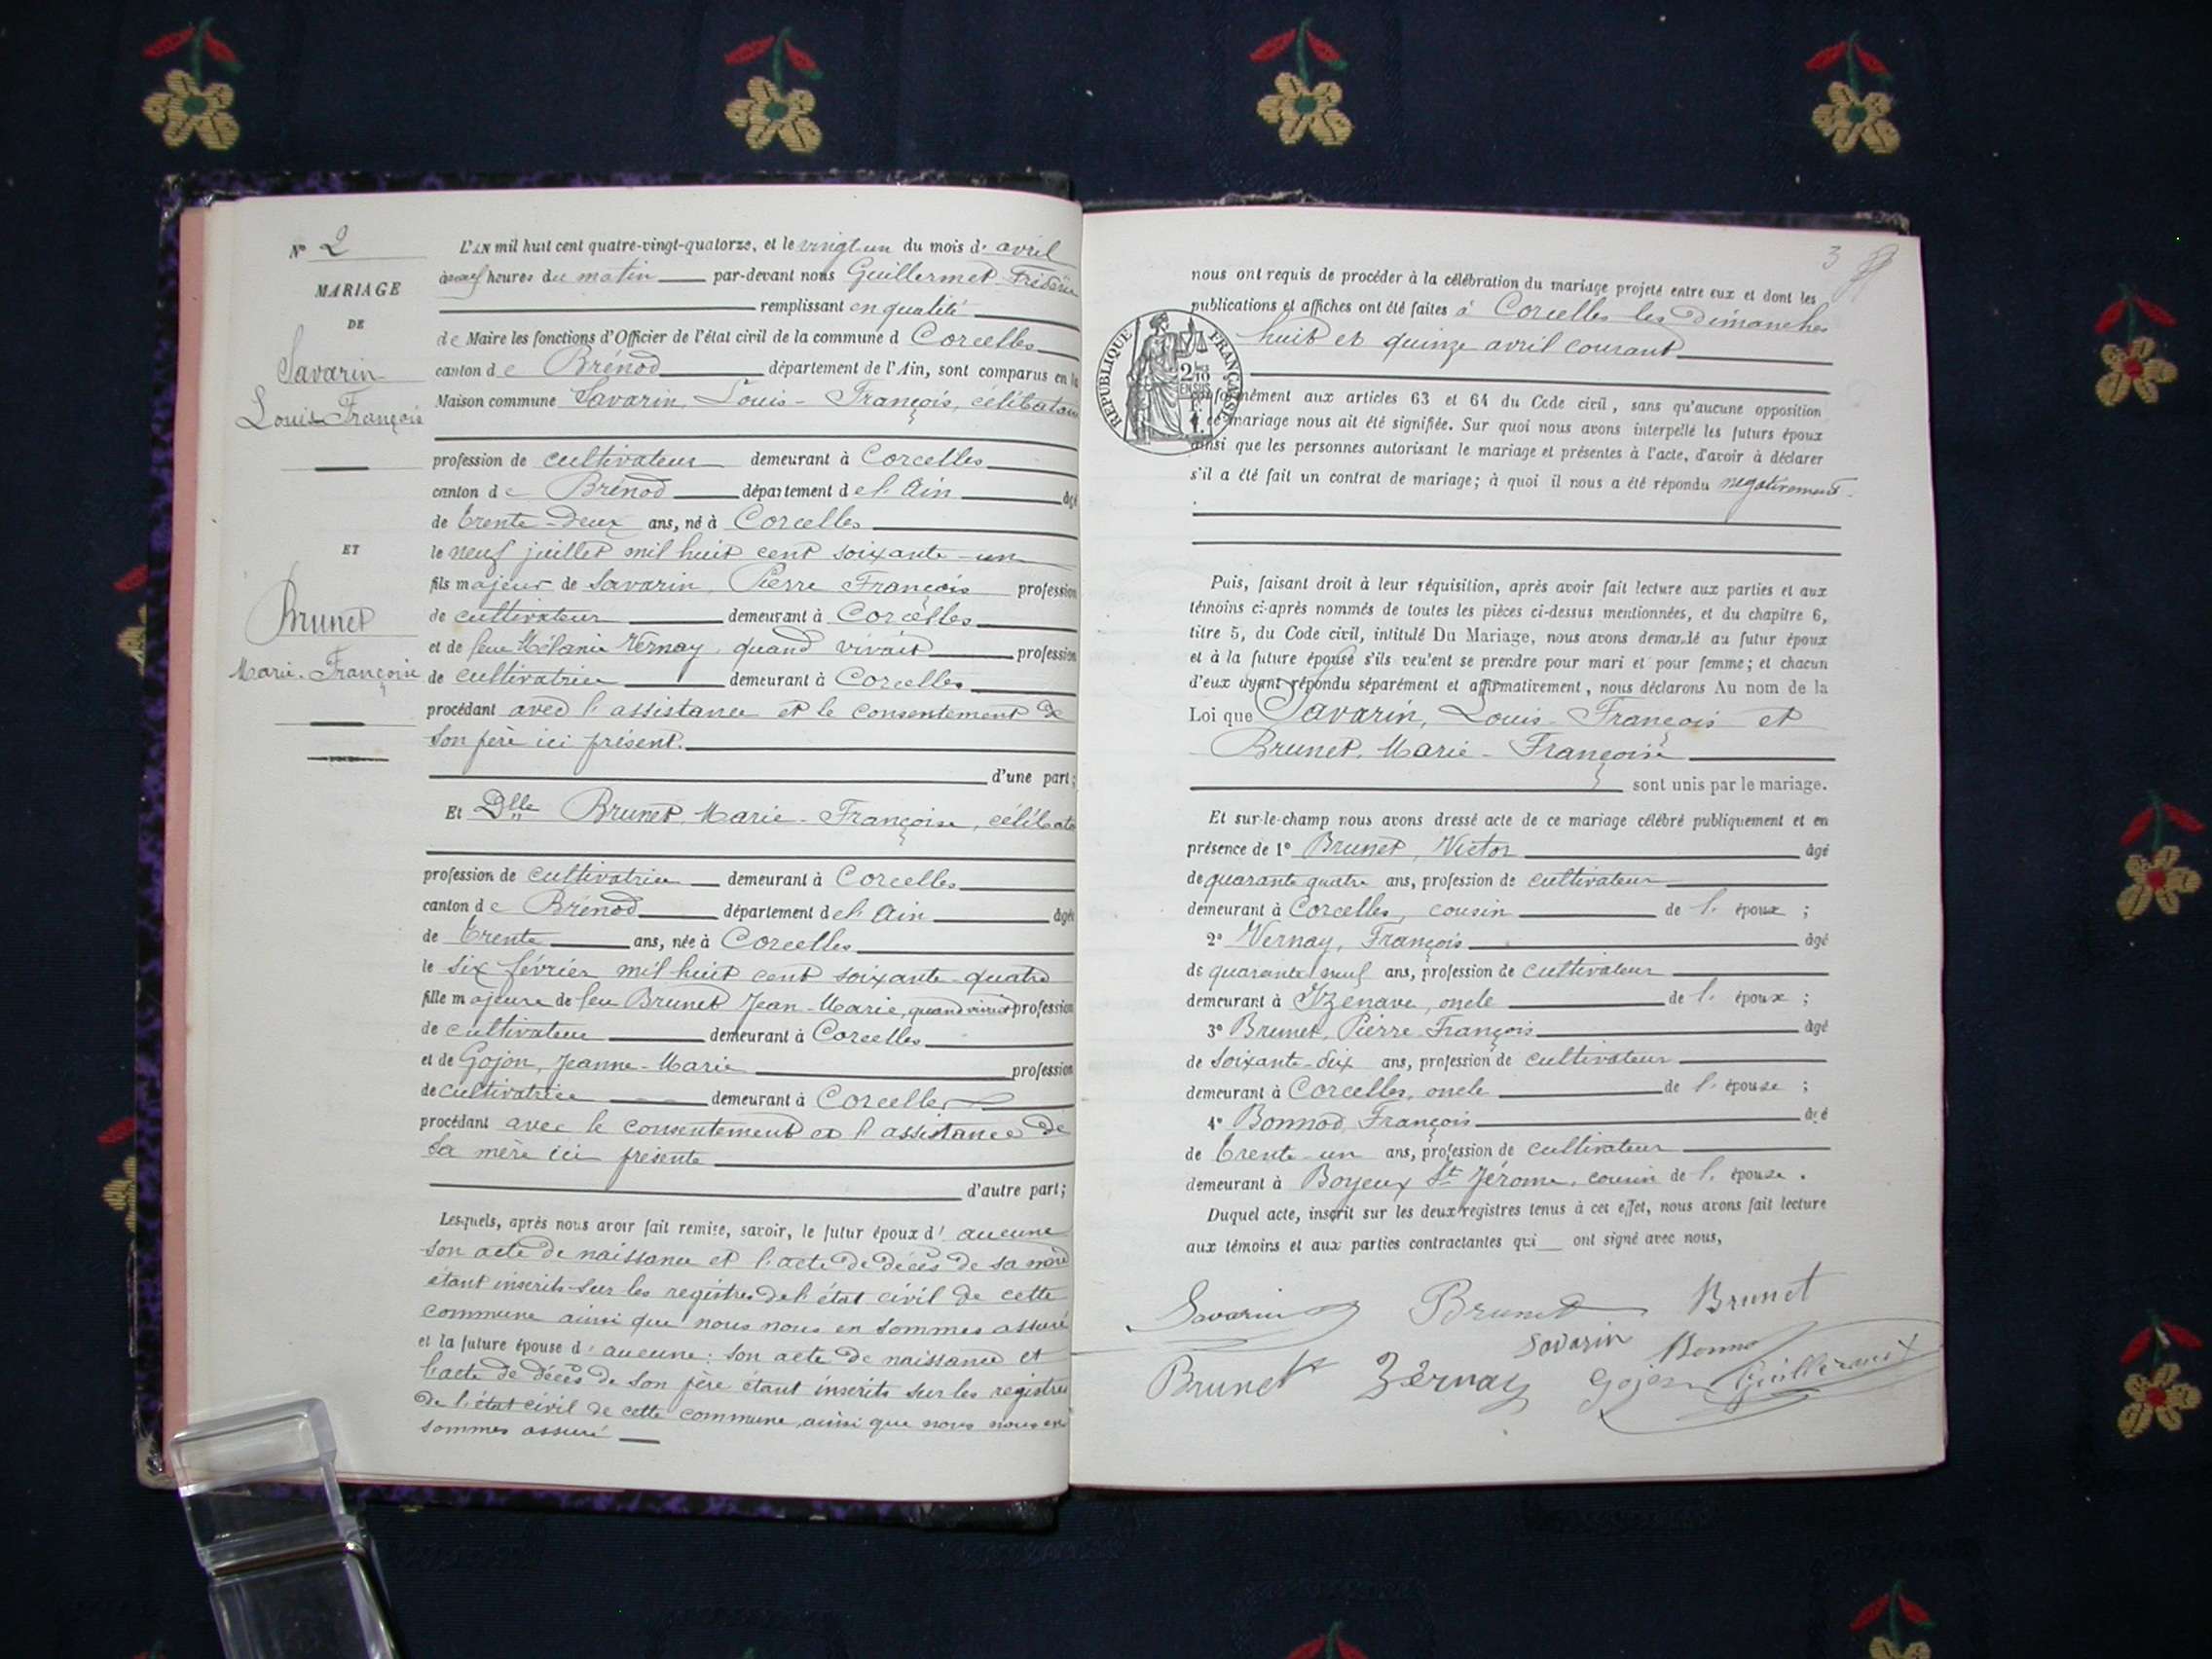 N° 2
MARIAGE
DE
Savarin
Louis François
ET
Brunet
Marie-Françoise
L'AN mil huit cent quatre-vingt-quatorze, et le vingt-un du mois d' avril
à neuf heures du matin par-devant nous Guillermet Frédéric
remplissant en qualité
de Maire les fonctions d'Officier de l'état civil de la commune d Corcelles
canton de Brénod département de l'Ain, sont comparus en la
Maison commune Savarin, Louis-François, célibataire
profession de cultivateur demeurant à Corcelles
canton de Brénod département de l'Ain âgé
de trente-deux ans, né à Corcelles
le neuf juillet mil huit cent soixante-un
fils majeur de Savarin, Pierre François profession
de cultivateur demeurant à Corcelles
et de feue Mélanie Vernay, quand vivait profession
de cultivatrice demeurant à Corcelles
procédant avec l'assistance et le consentement de
son père ici présent.
d'une part;
Et Dlle Brunet, Marie-Françoise, célibat
profession de cultivatrice demeurant à Corcelles
canton de Brénod département de l'Ain âgée
de trente ans, née à Corcelles
le six février mil huit cent soixante-quatre
fille majeure de feu Brunet Jean-Marie, quand vivait profession
de cultivateur demeurant à Corcelles
et de Gojon, Jeanne-Marie profession
de cultivatrice demeurant à Corcelles
procédant avec le consentement et l'assistance de
sa mère ici présente
d'autre part;
Lesquels, après nous avoir fait remise, savoir, le futur époux d' aucune
son acte de naissance et l'acte de décès de sa mère
étant inscrits sur les registres de l'état civil de cette
commune ainsi que nous nous en sommes assuré
et la future épouse d' aucune: son acte de naissance et
l'acte de décès de son père étant inscrits sur les registres
de l'état civil de cette commune, ainsi que nous nous en
sommes assuré
3
nous ont requis de procéder à la célébration du mariage projeté entre eux et dont les
publications et affiches ont été faites à Corcelles les dimanches
huit et quinze avril courant
REPUBLIQUE FRANÇAISE
2/10
EN SUS
conformément aux articles 63 et 64 du Code civil, sans qu'aucune opposition
à ce mariage nous ait été signifiée. Sur quoi nous avons interpellé les futurs époux
ainsi que les personnes autorisant le mariage et présentes à l'acte, d'avoir à déclarer
s'il a été fait un contrat de mariage; à quoi il nous a été répondu négativement.
Puis, faisant droit à leur réquisition, après avoir fait lecture aux parties et aux
témoins ci-après nommés de toutes les pièces ci-dessus mentionnées, et du chapitre 6,
titre 5, du Code civil, intitulé Du Mariage, nous avons demandé au futur époux
et à la future épouse s'ils veulent se prendre pour mari et pour femme; et chacun
d'eux ayant répondu séparément et affirmativement, nous déclarons Au nom de la
Loi que Savarin, Louis-François et
Brunet, Marie-Françoise
sont unis par le mariage.
Et sur-le-champ nous avons dressé acte de ce mariage célébré publiquement et en
présence de 1° Brunet, Victor âgé
de quarante quatre ans, profession de cultivateur
demeurant à Corcelles, cousin de l' époux ;
2° Vernay, François âgé
de quarante neuf ans, profession de cultivateur
demeurant à Izenave, oncle de l' époux ;
3° Brunet, Pierre-François âgé
de soixante-dix ans, profession de cultivateur
demeurant à Corcelles, oncle de l' épouse ;
4° Bonnod, François âgé
de trente-un ans, profession de cultivateur
demeurant à Boyeux St Jérome, cousin de l' épouse.
Duquel acte, inscrit sur les deux registres tenus à cet effet, nous avons fait lecture
aux témoins et aux parties contractantes qui ont signé avec nous,
Savarin Brunet Brunet
Savarin
Brunet Vernay Gojon